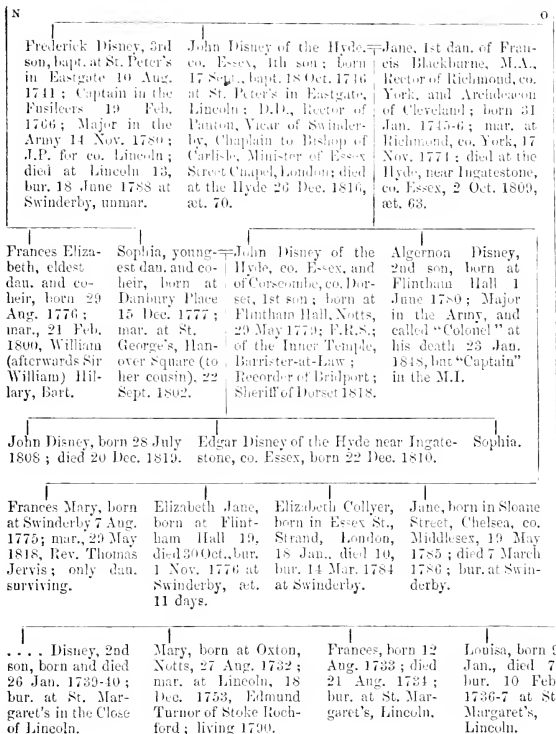 N
O
Frederick Disney, 3rd
son, bapt. at St. Peter's
in Eastgate 10 Aug.
1741; Captain in the
Fusileers 19 Feb.
1766; Major in the
Army 14 Nov. 1780;
J.P. for co. Lincoln;
died at Lincoln 13,
bur. 18 June 1788 at
Swinderby, unmar.
John Disney of the Hyde,
co. Essex, 4th son; born
17 Sept., bapt. 18 Oct. 1746
at St. Peter's in Eastgate,
Lincoln; D.D., Rector of
Panton, Vicar of Swinder-
by, Chaplain to Bishop of
Carlisle, Minister of Essex
Street Chapel, London; died
at the Hyde 26 Dec. 1816,
æt. 70.
Jane, 1st dau. of Fran-
cis Blackburne, M.A.,
Rector of Richmond, co.
York, and Archdeacon
of Cleveland; born 31
Jan. 1745-6; mar. at
Richmond, co. York, 17
Nov. 1774; died at the
Hyde, near Ingatestone,
co. Essex, 2 Oct. 1809,
æt. 63.
Frances Eliza-
beth, eldest
dau. and co-
heir, born 29
Aug. 1776;
mar., 21 Feb.
1800, William
(afterwards Sir
William) Hil-
lary, Bart.
Sophia, young-
est dau. and co-
heir, born at
Danbury Place
15 Dec. 1777;
mar. at St.
George's, Han-
over Square (to
her cousin), 22
Sept. 1802.
John Disney of the
Hyde, co. Essex, and
of Corscombe, co. Dor-
set, 1st son; born at
Flintham Hall, Notts,
29 May 1779; F.R.S.;
of the Inner Temple,
Barrister-at-Law;
Recorder of Bridport;
Sheriff of Dorset 1818.
Algernon Disney,
2nd son, born at
Flintham Hall 1
June 1780; Major
in the Army, and
called "Colonel" at
his death 23 Jan.
1848, but "Captain"
in the M.I.
John Disney, born 28 July
1808; died 20 Dec. 1819.
Edgar Disney of the Hyde near Ingate-
stone, co. Essex, born 22 Dec. 1810.
Sophia.
Frances Mary, born
at Swinderby 7 Aug.
1775; mar., 29 May
1818, Rev. Thomas
Jervis; only dau.
surviving.
Elizabeth Jane,
born at Flint-
ham Hall 19,
died 30 Oct., bur.
1 Nov. 1776 at
Swinderby, æt.
11 days.
Elizabeth Collyer,
born in Essex St.,
Strand, London,
18 Jan., died 10,
bur. 14 Mar. 1784
at Swinderby.
Jane, born in Sloane
Street, Chelsea, co.
Middlesex, 19 May
1785; died 7 March
1786; bur. at Swin-
derby.
. . . . Disney, 2nd
son, born and died
26 Jan. 1739-40;
bur. at St. Mar-
garet's in the Close
of Lincoln.
Mary, born at Oxton,
Notts, 27 Aug. 1732;
mar. at Lincoln, 18
Dec. 1753, Edmund
Turnor of Stoke Roch-
ford; living 1790.
Frances, born 12
Aug. 1733; died
21 Aug. 1734;
bur. at St. Mar-
garet's, Lincoln.
Louisa, born 9
Jan., died 7
bur. 10 Feb
1736-7 at St
Margaret's,
Lincoln.